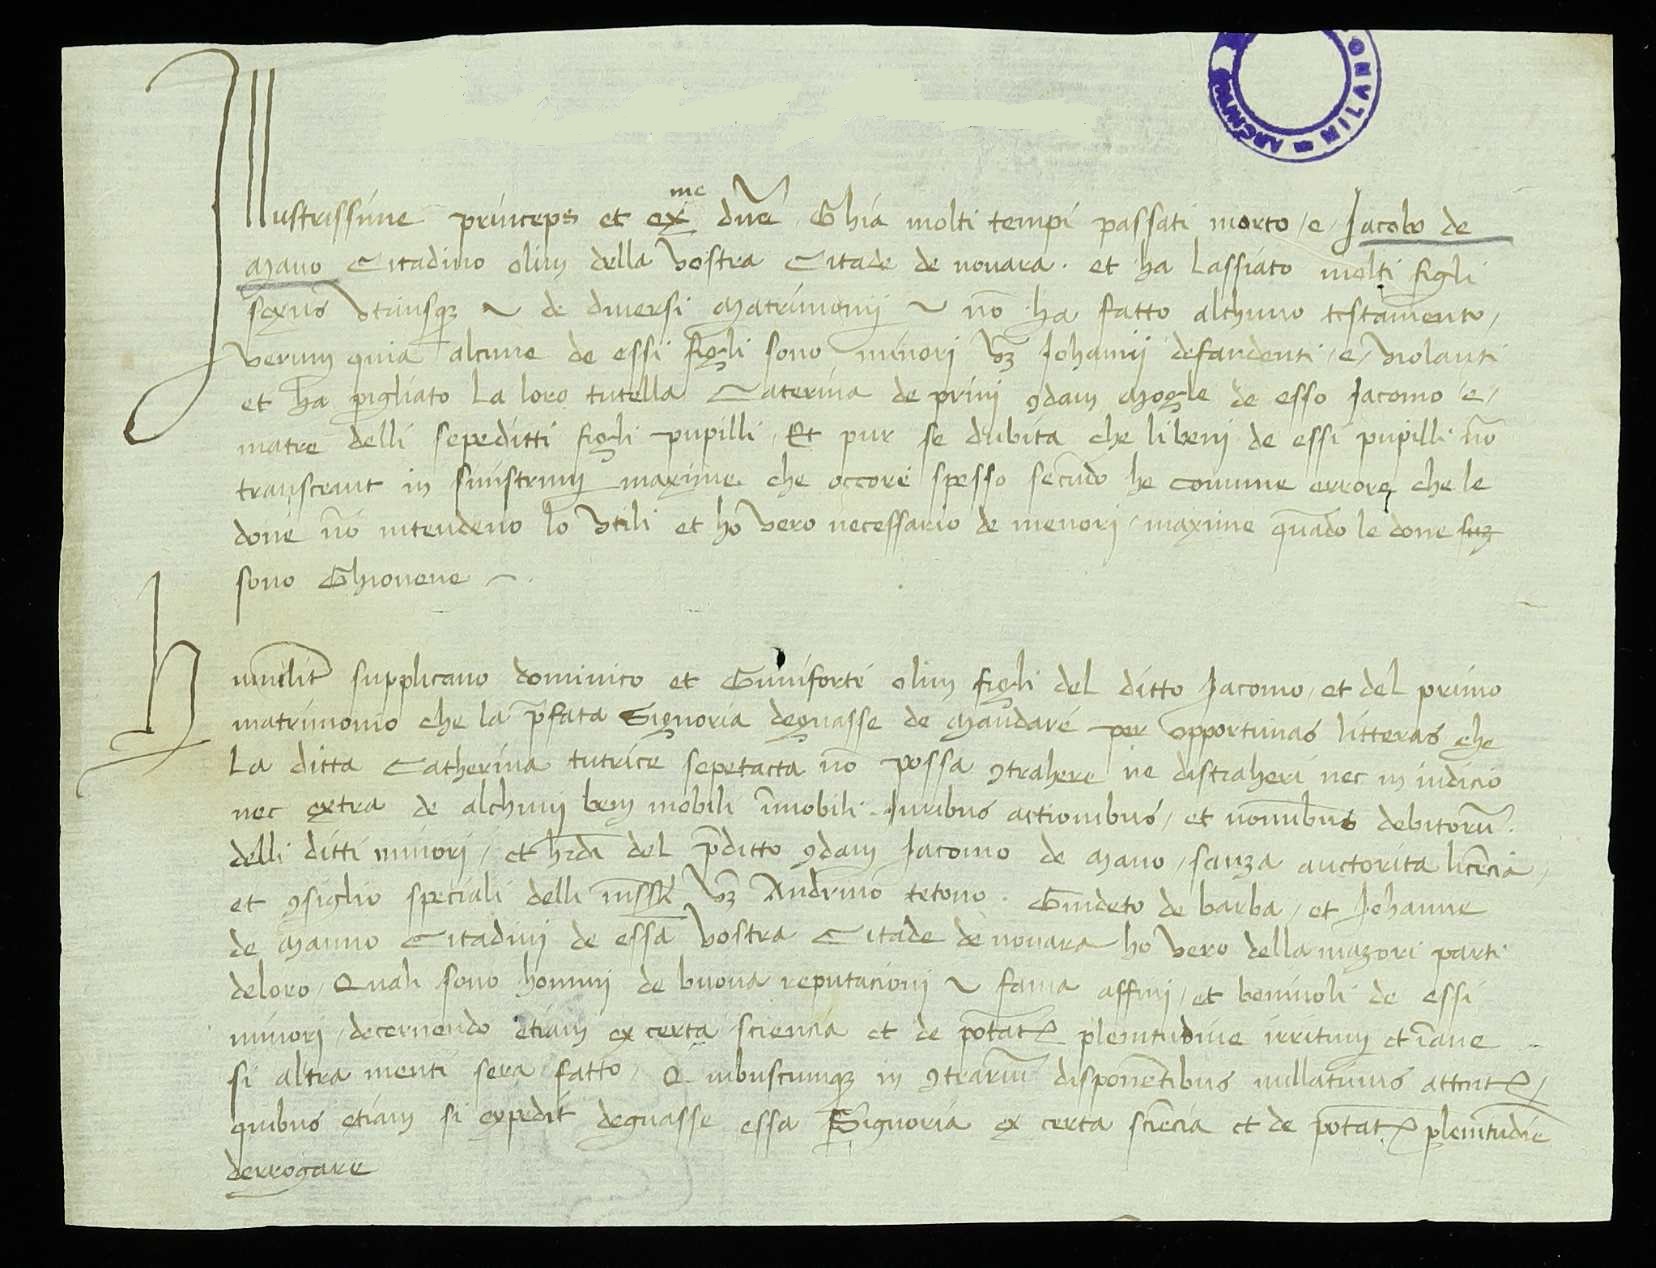 ARCHIVIO
MILANO
Illustrissime princeps et ex^me dn̄e Ghia molti tempi passati morto / e / Jacobo de
Mano Citadino olim della Vostra Citade de novara . et ha Lassiato molti figli
sexus utriusq₃ ~ de diversi Matrimonij ~ nō ha fatto alchuno testamento /
Verum quia alcune de essi figli sono minori vz Johanni defandenti / e / violanti
et ha pigliato La loro tutella Caterina de prini ꝯdam Mogle de esso Jacomo / e /
matre delli sepeditti figli pupilli / Et pur se dubita che li beni de essi pupilli nō
transeant in sinistrum maxime che occore spesso secūdo he comune errore che le
done nō intendeno lo utili et ho vero necessario de menori / maxime quādo le done
sono Ghiovene ~
Humilit̄ supplicano dominico et Guniforte olim figli del ditto Jacomo / et del primo
matrimonio che la p̄fata Signoria degnasse de Mandare per opportunas litteras che
La ditta Catherina tutrice sepetacta nō possa ꝯtrahere ne distraheri nec in iudicio
nec extra de alchuni beni mobili īmobili . Juribus actionibus / et nominibus debitorū .
delli ditti minori / et h̄di del p̄ditto ꝯdam Jacomo de Mano / sanza auctorita licēcia /
et ꝯsiglio speciali delli vz Andrino tetono . Guideto de barba / et Johanne
de Manno Citadini de essa Vostra Citade de novara ho vero della mazori parti
deloro / Quali sono homini de buona reputacioni ~ fama affini / et benivoli de essi
minori / decernendo etiam ex certa sciencia et de potātꝭ plenitudine irritum et īane
si altra menti sera fatto / Quibuscumq₃ in ꝯtrariū disponētibus nullatinus attentꝭ /
quibus etiam si expedit degnasse essa Signoria ex certa sciēcia et de potātꝭ plenitudīe
derrogare